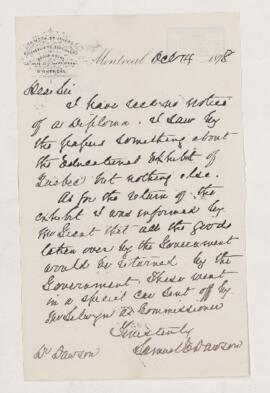 Montreal Oct 14 1878
Dear Sir
I have received no notice
of a Diploma. I saw by
the papers something about
the Educational Exhibit of
Quebec but nothing else.
As for the return of the
exhibit I was informed by
Mr Grant that all the goods
taken over by the Government
would be returned by the
Government. These went
in a special car sent off by
Mr Selwyn as Commissioner
Yours truly
Dr Dawson Samuel E Dawson